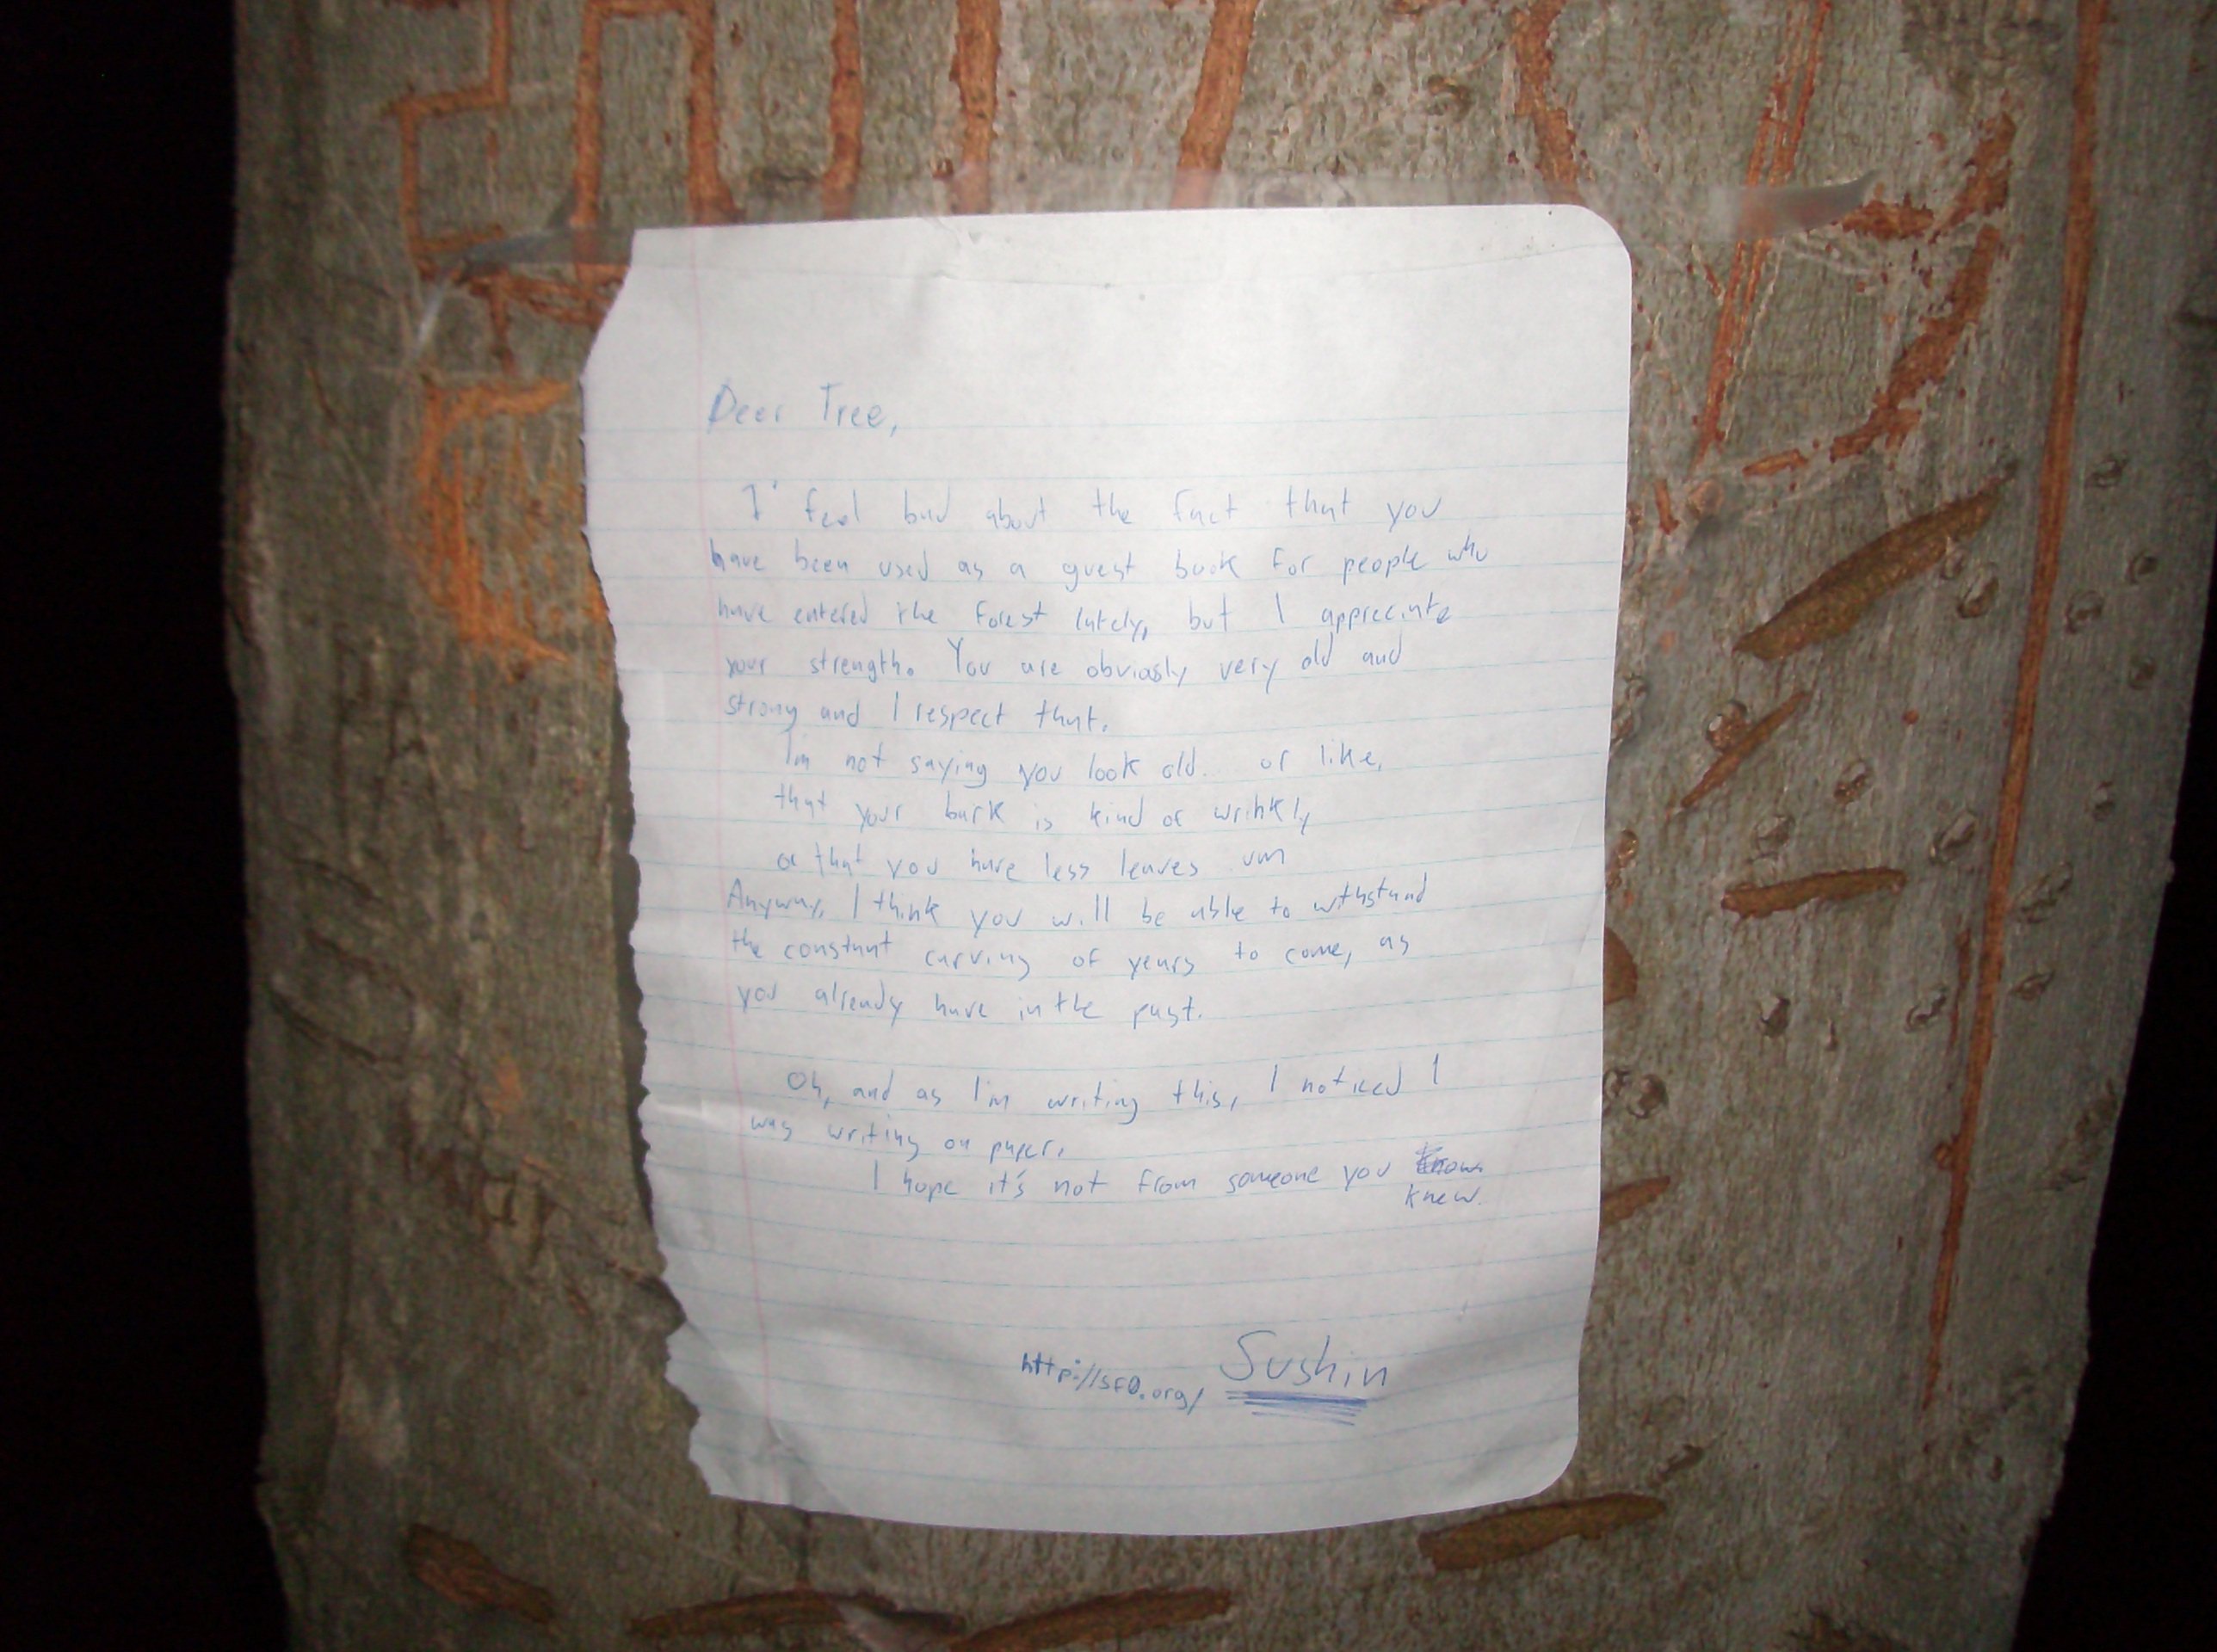 Dear Tree,
I feel bad about the fact that you
have been used as a guest book for people who
have entered the forest lately, but I appreciate
your strength. You are obviosly very old and
strong and I respect that.
I'm not saying you look old... or like,
that your bark is kind of wrinkly
or that you have less leaves um
Anyway, I think you will be able to withstand
the constant carving of years to come, as
you already have in the past.
Oh, and as I'm writing this, I noticed I
was writing on paper.
I hope it's not from someone you know
knew.
http://sf0.org/ Sushin